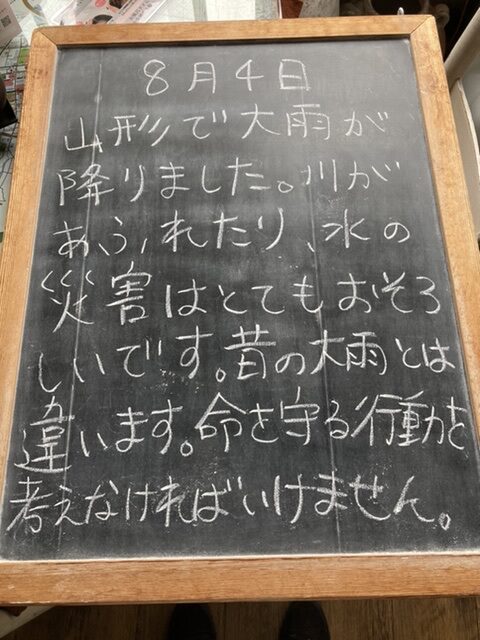 8月4日
山形で大雨が
降りました。川が
あふれたり、水の
災害はとてもおそろ
しいです。昔の大雨とは
違います。命を守る行動を
考えなければいけません。